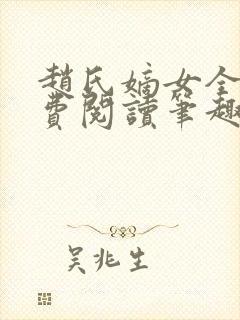 趙氏嫡女全
費閱讀筆趣
吳兆生